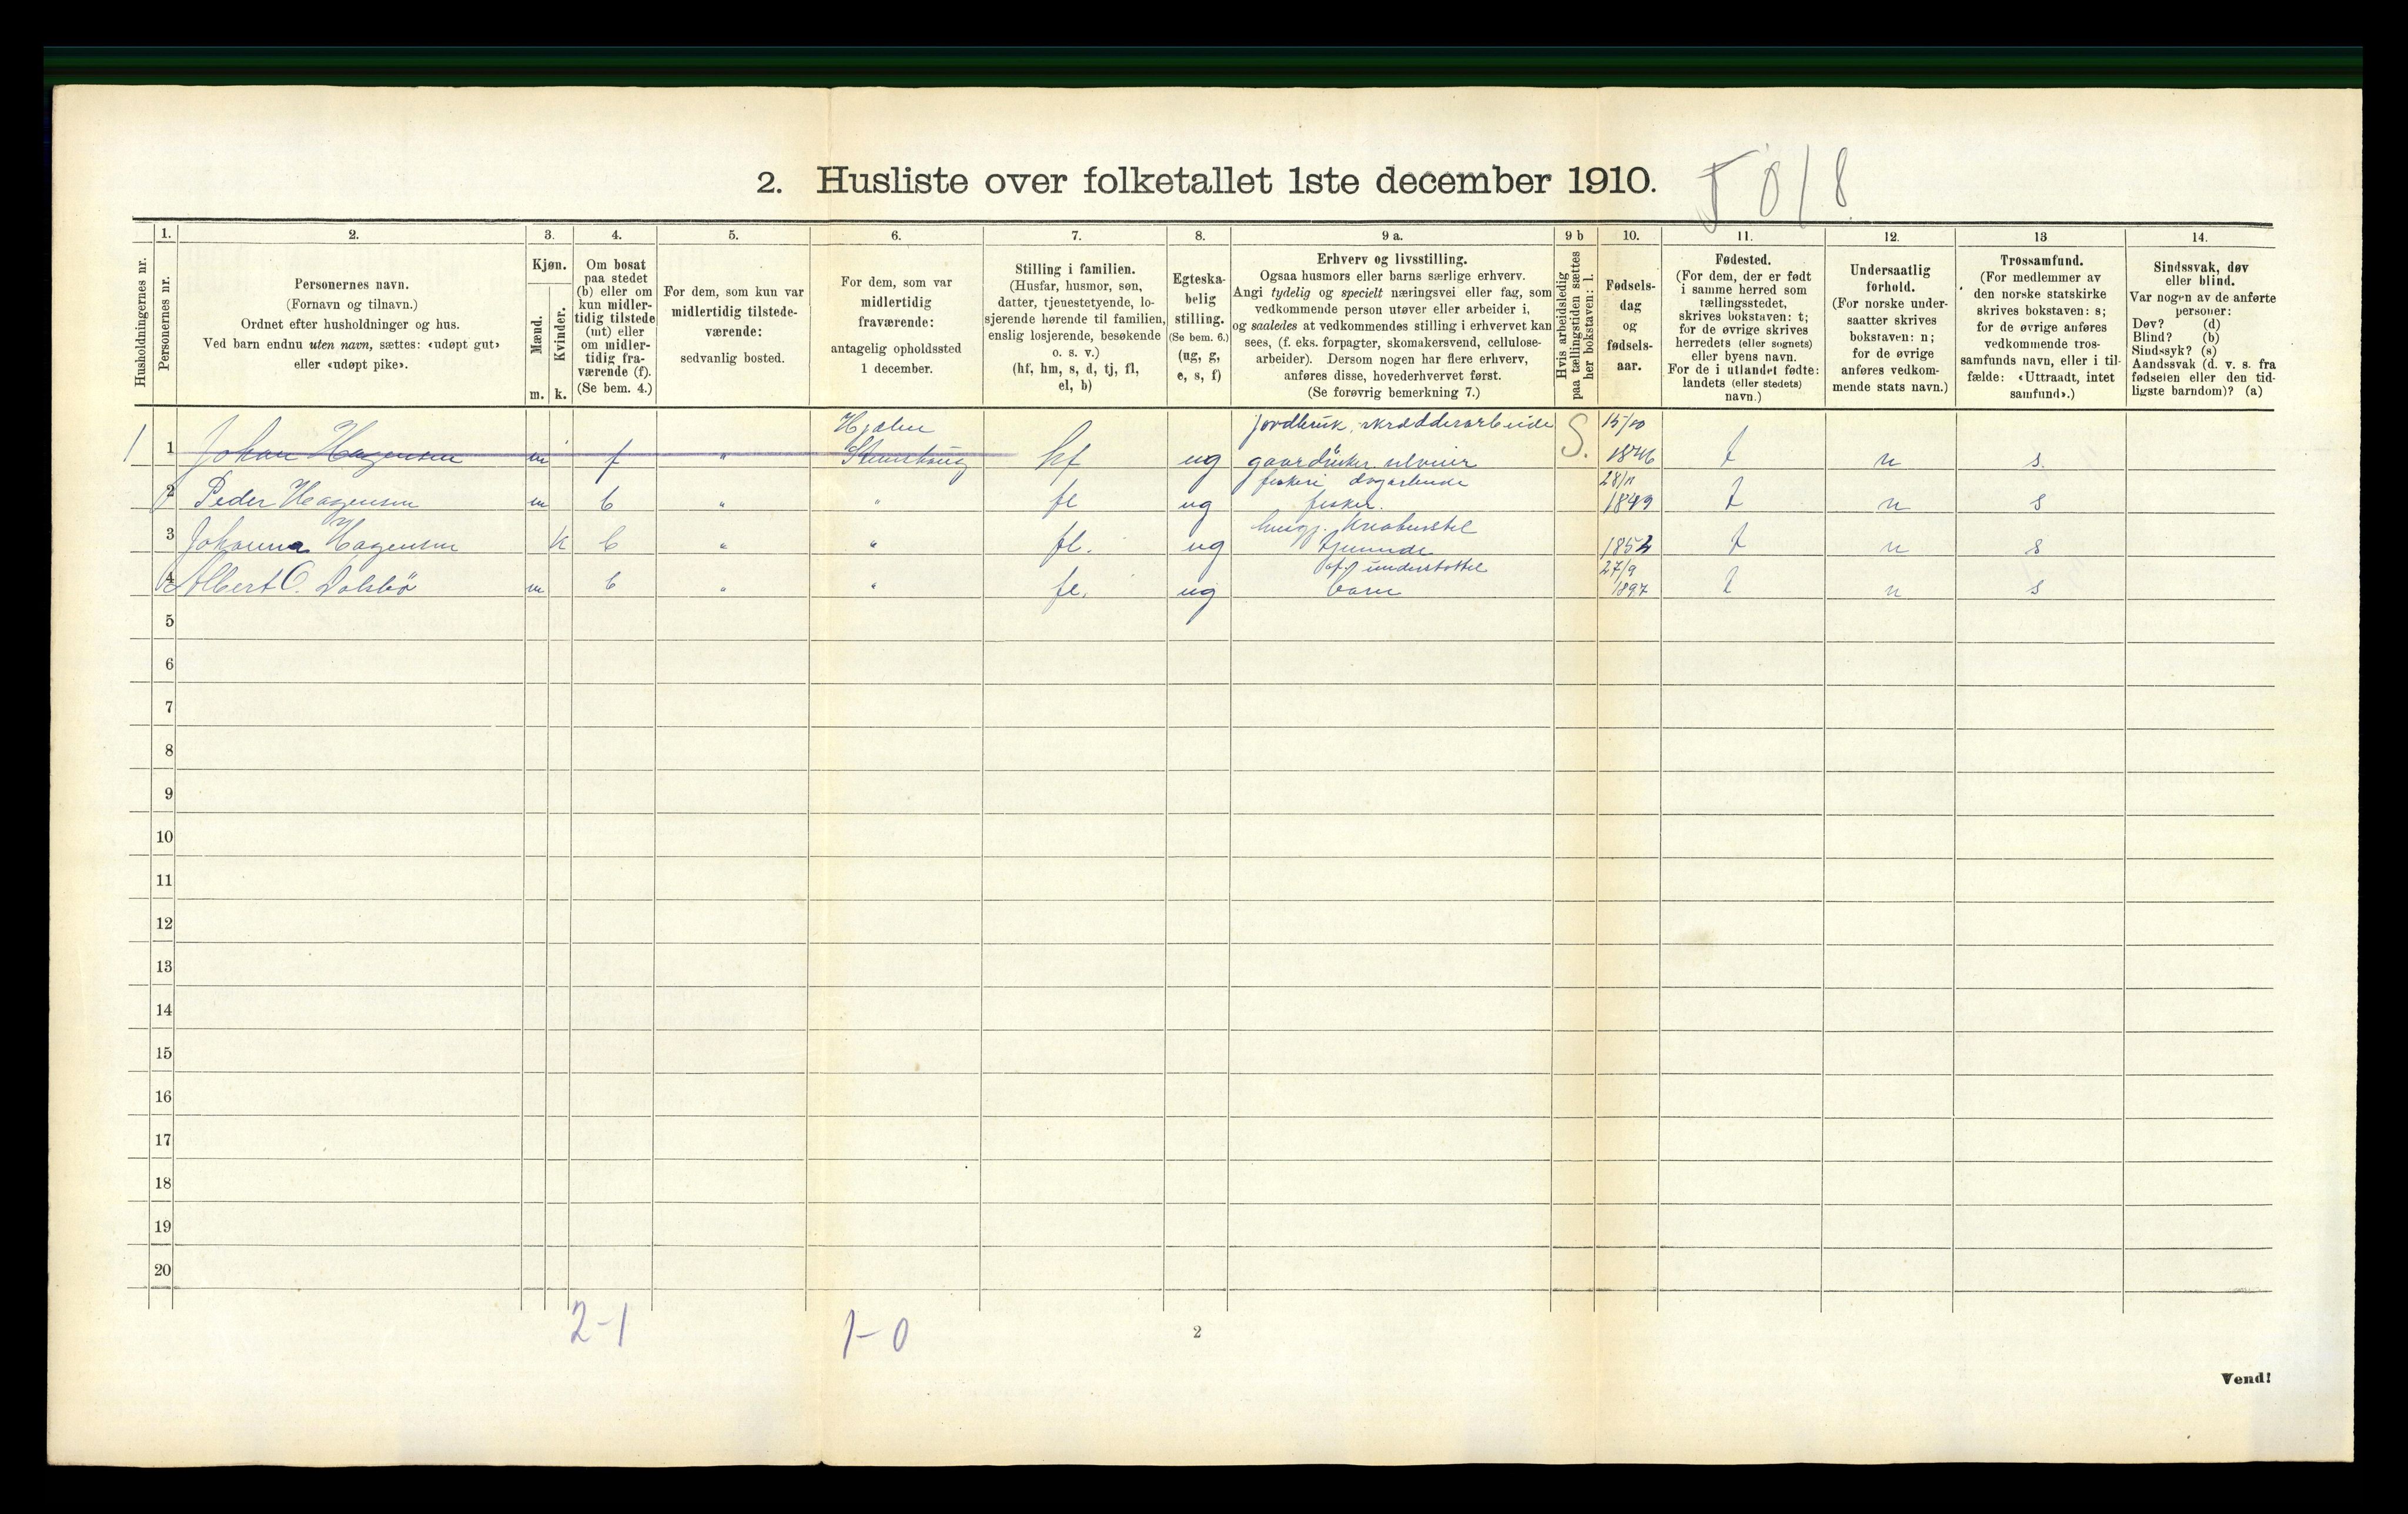 2. Husliste over folketallet 1ste december 1910.
5018
Husholdningernes nr.
1.
Personernes nr.
2.
Personernes navn.
(Fornavn og tilnavn.)
Ordnet efter husholdninger og hus.
Ved barn endnu uten navn, sættes: «udøpt gut»
eller «udøpt pike».
3.
Kjøn.
Mænd.
Kvinder.
m. k.
4.
Om bosat
paa stedet
(b) eller om
kun midler-
tidig tilstede
(mt) eller
om midler-
tidig fra-
værende (f).
(Se bem. 4.)
5.
For dem, som kun var
midlertidig tilstede-
værende:
sedvanlig bosted.
6.
For dem, som var
midlertidig
fraværende:
antagelig opholdssted
1 december.
7.
Stilling i familien.
(Husfar, husmor, søn,
datter, tjenestetyende, lo-
sjerende hørende til familien,
enslig losjerende, besøkende
o. s. v.)
(hf, hm, s, d, tj, fl,
el, b)
8.
Egteska-
belig
stilling.
(Se bem. 6.)
(ug, g,
e, s, f)
9 a.
Erhverv og livsstilling.
Ogsaa husmors eller barns særlige erhverv.
Angi tydelig og specielt næringsvei eller fag, som
vedkommende person utøver eller arbeider i,
og saaledes at vedkommendes stilling i erhvervet kan
sees, (f. eks. forpagter, skomakersvend, cellulose-
arbeider). Dersom nogen har flere erhverv,
anføres disse, hovederhvervet først.
(Se forøvrig bemerkning 7.)
9 b
Hvis arbeidsledig
paa tællingstiden sættes
her bokstaven: l.
10.
Fødsels-
dag
og
fødsels-
aar.
11.
Fødested.
(For dem, der er født
i samme herred som
tællingsstedet,
skrives bokstaven: t;
for de øvrige skrives
herredets (eller sognets)
eller byens navn.
For de i utlandet fødte:
landets (eller stedets)
navn.)
12.
Undersaatlig
forhold.
(For norske under-
saatter skrives
bokstaven: n;
for de øvrige
anføres vedkom-
mende stats navn.)
13
Trossamfund.
(For medlemmer av
den norske statskirke
skrives bokstaven: s;
for de øvrige anføres
vedkommende tros-
samfunds navn, eller i til-
fælde: «Uttraadt, intet
samfund».)
14.
Sindssvak, døv
eller blind.
Var nogen av de anførte
personer:
Døv? (d)
Blind? (b)
Sindssyk? (s)
Aandssvak (d. v. s. fra
fødselen eller den tid-
ligste barndom)? (a)
Hjalm jordbruk, skrædderarbeide 15/10
1 1 Johan Hagensen m f " hf ug gaardbruker S. 1846 t n s.
fiskeri 28/11
2 Peder Hagensen m b " " fl ug fisker. 1849 t n s
husgj.
3 Johanna Hagensen k b " " fl. ug 1852 t n s
understøttet 27/9
4 Albert O. m b " " fl. ug barn 1897 t n s
5
6
7
8
9
10
11
12
13
14
15
16
17
18
19
20
2-1 1-0
2
Vend!